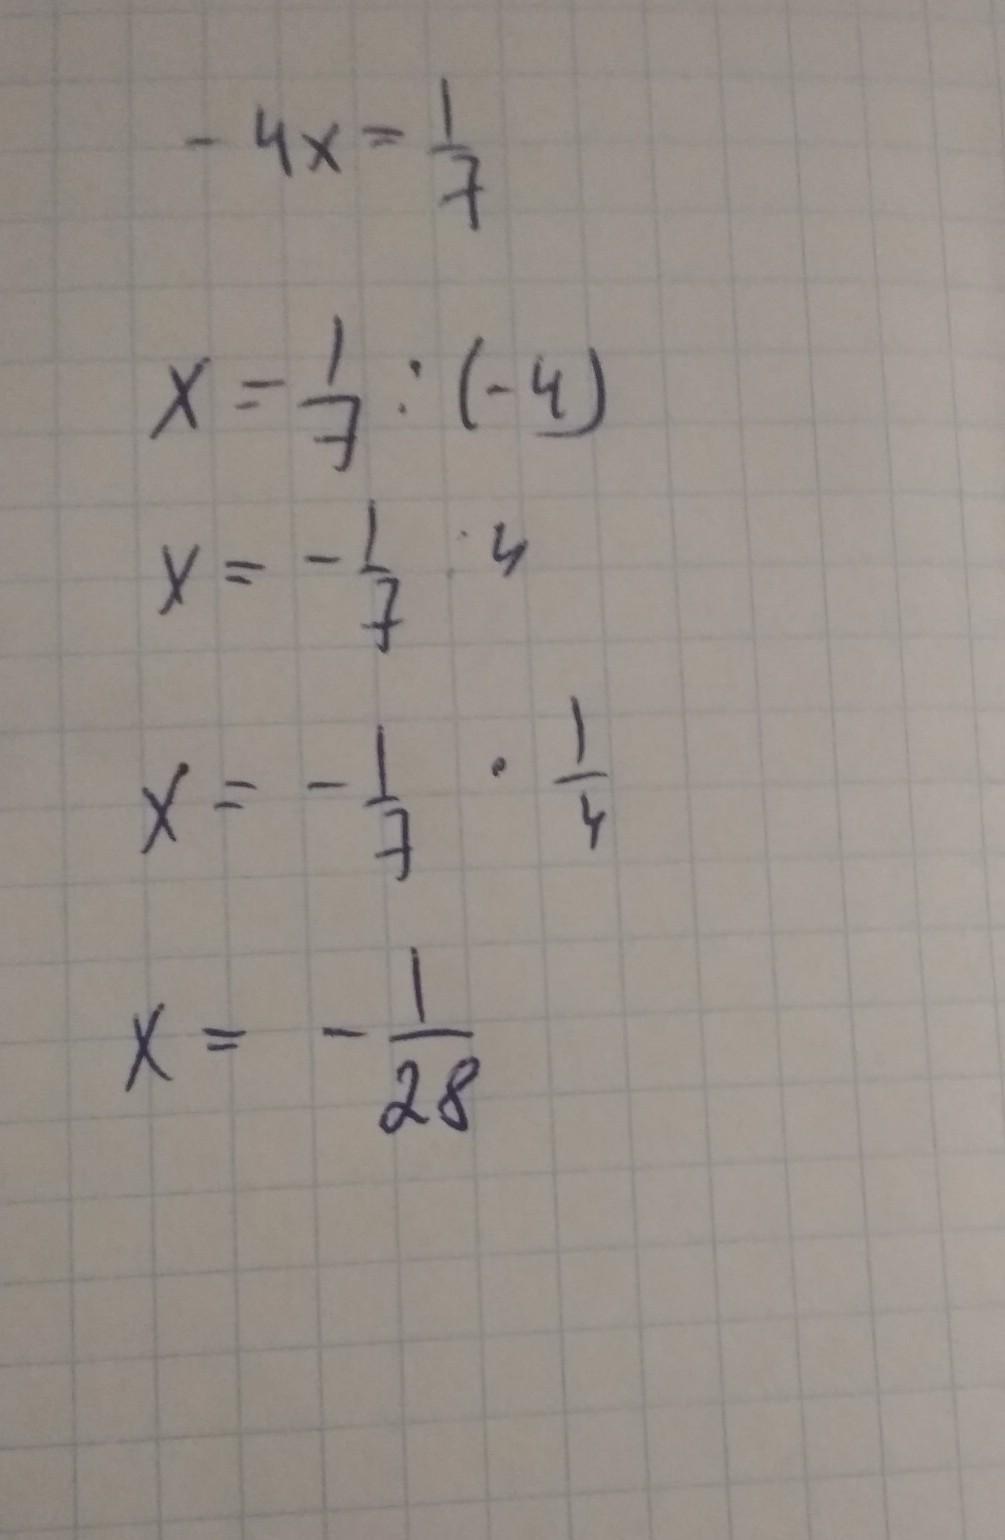 - 4x = 1/7
x = 1/7 : (-4)
x = - 1/7 : 4
x = - 1/7 · 1/4
x = - 1/28